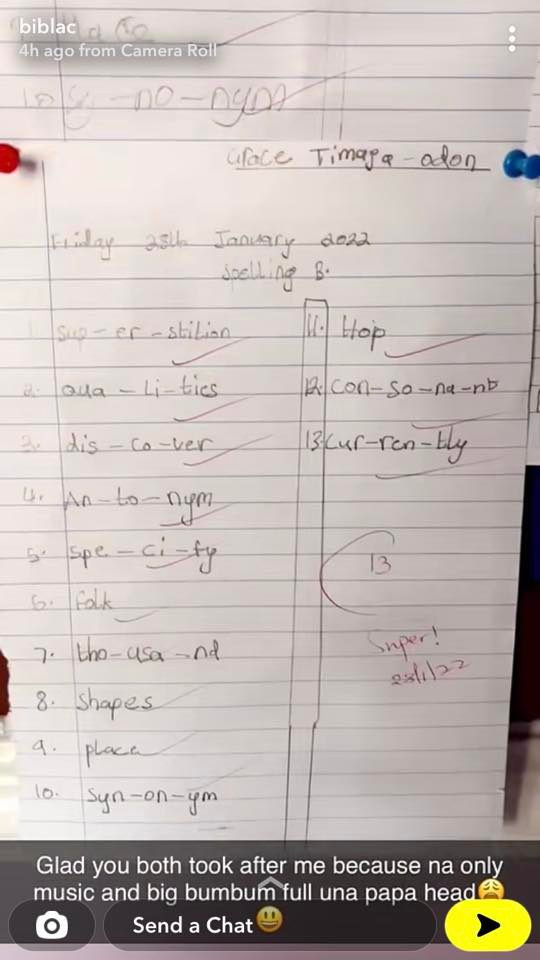 biblac
4h ago from Camera Roll
10 Sy-no-nym
Grace Timapa-odon
Friday 28th January 2022
Spelling B.
1. Sup-er-stition
2. qua-li-tics
3. dis-co-ver
4. An-to-nym
5. Spe-ci-fy
6. folk
7. tho-usa-nd
8. Shapes
9. place
10. Syn-on-ym
11. Hop
12. Con-so-na-nt
13 Cur-ren-tly
13
Super!
28/1/22
Glad you both took after me because na only
music and big bumbum full una papa head😩
Send a Chat😃